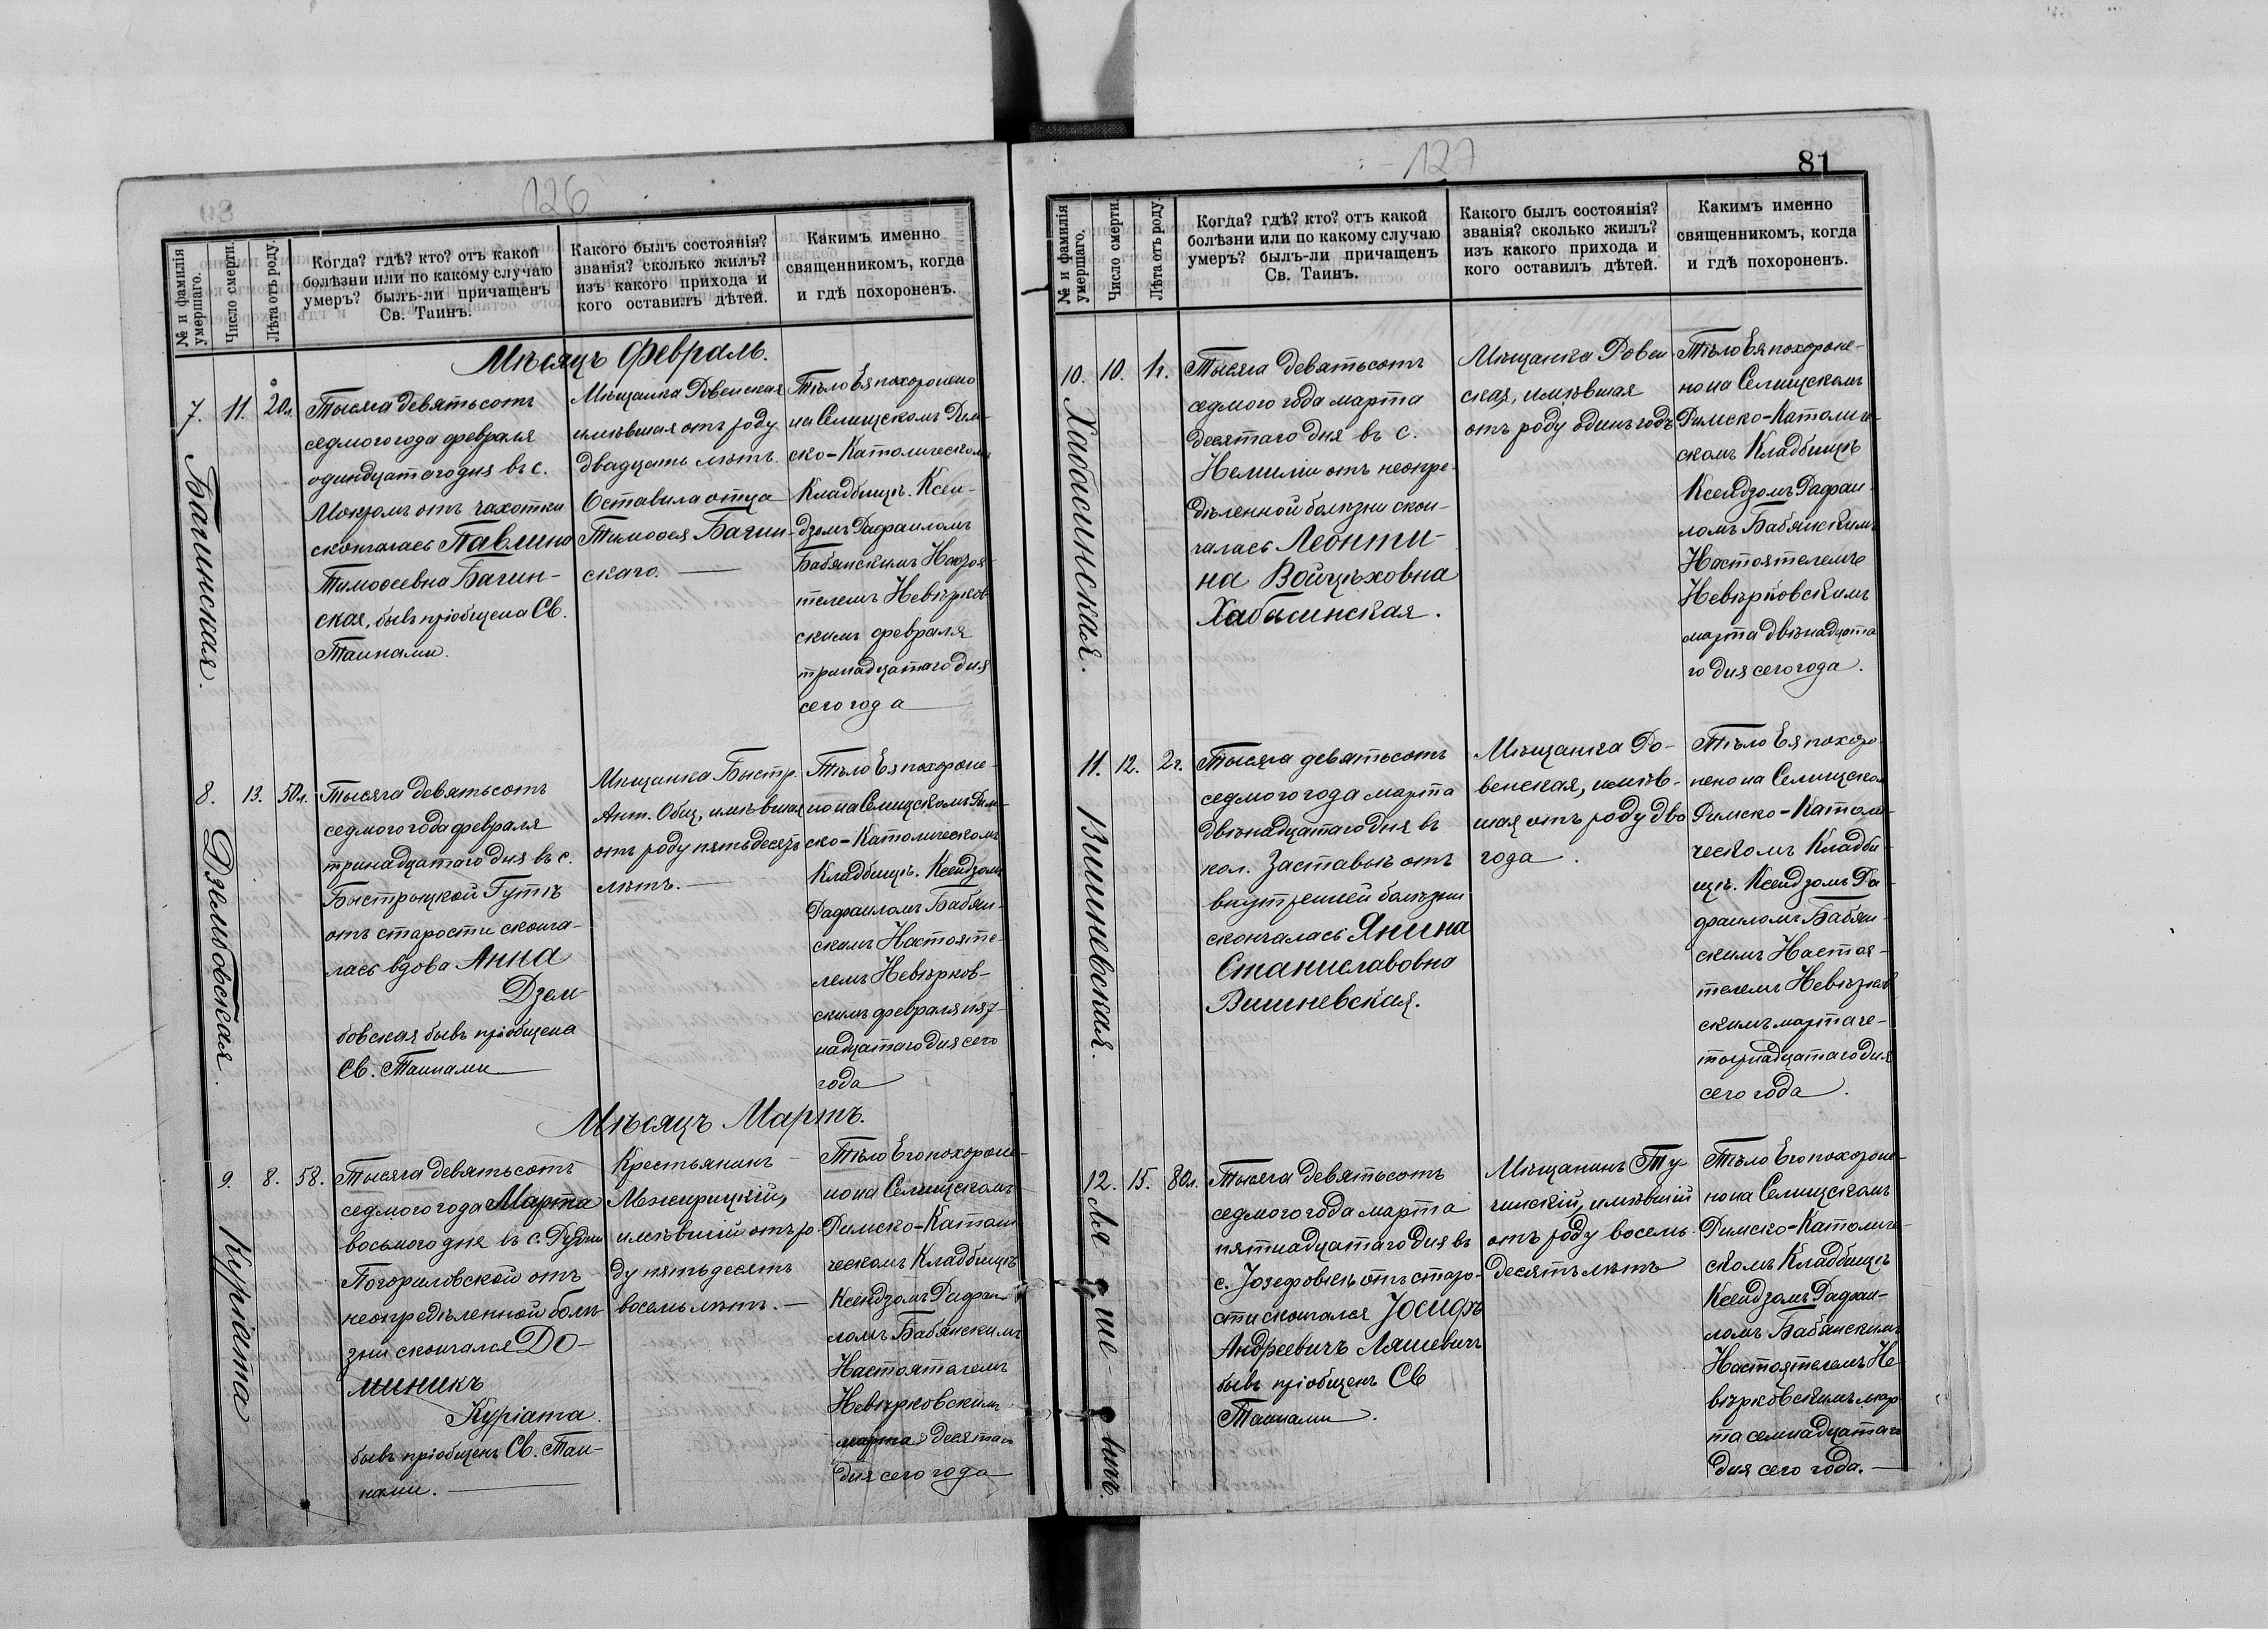 126
№ и фамилія умершаго.
Число смерти.
Лѣта отъ роду.
Когда? гдѣ? кто? отъ какой
болѣзни или по какому случаю
умеръ? былъ-ли причащенъ
Св. Таинъ.
Какого былъ состоянія?
званія? сколько жилъ?
изъ какого прихода и
кого оставилъ дѣтей.
Какимъ именно
священникомъ, когда
и гдѣ похороненъ.
Мѣсяцъ Февраль.
7.
Багинская.
11.
20л.
Тысяча девятьсотъ
седмого года февраля
одинадцатаго дня въ с.
Мокромъ отъ чахотки
скончалась Павлина
Тимоѳеевна Багин-
ская, бывъ пріобщена Св.
Тайнами.
Мѣщанка Ровенская
имѣвшая отъ роду
двадцать лѣтъ.
Оставила отца
Тимоѳея Багин-
скаго. —
Тѣло Ея похоронено
на Селищскомъ Рим-
ско-Католическомъ
Кладбищѣ. Ксен-
дзомъ Рафаиломъ
Бабянскимъ Настоя-
телемъ Невѣрков-
скимъ февраля
тринадцатаго дня
сего года
8.
Дзембовская.
13.
50л.
Тысяча девятьсотъ
седмого года февраля
тринадцатаго дня въ с.
Быстрыцкой Гутѣ
отъ старости сконча-
лась вдова Анна
Дзем-
бовская бывъ пріобщена
Св. Тайнами
Мѣщанка Быстр.
Ант. Общ., имѣвшая
отъ роду пятьдесятъ
лѣтъ. —
Тѣло Ея похороне-
но на Селищскомъ Рим-
ско-Католическомъ
Кладбищѣ. Ксендзомъ
Рафаиломъ Бабян-
скимъ Настояте-
лемъ Невѣрков-
скимъ февраля пят-
надцатаго дня сего
года
Мѣсяцъ Мартъ.
9.
Куріата
8.
58.
Тысяча девятьсотъ
седмого года Марта
восьмого дня въ с. Рудни
Погориловской отъ
неопредѣленной болѣ-
зни скончался До-
миникъ
Куріата
бывъ пріобщенъ Св. Тай-
нами.
Крестьянинъ
Межирицкій,
имѣвшій отъ ро-
ду пятьдесятъ
восемь лѣтъ. —
Тѣло Его похороне-
но на Селищскомъ
Римско-Католи-
ческомъ Кладбищѣ
Ксендзомъ Рафаи-
ломъ Бабянскимъ
Настоятелемъ
Невѣрковскимъ
марта десятаго
дня сего года
127
81
№ и фамилія умершаго.
Число смерти.
Лѣта отъ роду.
Когда? гдѣ? кто? отъ какой
болѣзни или по какому случаю
умеръ? былъ-ли причащенъ
Св. Таинъ.
Какого былъ состоянія?
званія? сколько жилъ?
изъ какого прихода и
кого оставилъ дѣтей.
Какимъ именно
священникомъ, когда
и гдѣ похороненъ.
10.
Хабасинская.
10.
1г.
Тысяча девятьсотъ
седмого года марта
десятаго дня въ с.
Немили отъ неопре-
дѣленной болѣзни скон-
чалась Леонти-
на Войцѣховна
Хабасинская.
Мѣщанка Ровен
ская, имѣвшая
отъ роду одинъ годъ
Тѣло Ея похороне-
но на Селищскомъ
Римско-Католиче-
скомъ Кладбищѣ
Ксендзомъ Рафаи-
ломъ Бабянскимъ
Настоятелемъ
Невѣрковскимъ
марта двѣнадцата
го дня сего года.
11.
Вишневская.
12.
2г.
Тысяча девятьсотъ
седмого года марта
двѣнадцатаго дня въ
кол. Заставьѣ отъ
внутренней болѣзни
скончалась Янина
Станиславовна
Вишневская.
Мѣщанка Ро-
венская, имѣв-
шая отъ роду два
года.
Тѣло Ея похоро-
нено на Селищском
Римско-Католи-
ческомъ Кладби-
щѣ. Ксендзомъ Ра-
фаиломъ Бабян-
скимъ Настоя-
телемъ Невѣрков
скимъ марта че-
тырнадцатаго дня
сего года.
12.
Ляшевичъ.
15.
80л.
Тысяча девятьсотъ
седмого года марта
пятнадцатаго дня въ
с. Іозефовкѣ отъ старо-
сти скончался Іосифъ
Андреевичъ Ляшевичъ
бывъ пріобщенъ Св
Тайнами.
Мѣщанинъ Ту-
чинскій, имѣвшій
отъ роду восемь-
десятъ лѣтъ
Тѣло Его похороне-
но на Селищскомъ
Римско-Католиче-
скомъ Кладбищѣ
Ксендзомъ Рафаи-
ломъ Бабянскимъ
Настоятелемъ Не-
вѣрковскимъ мар-
та семнадцатаго
дня сего года. —